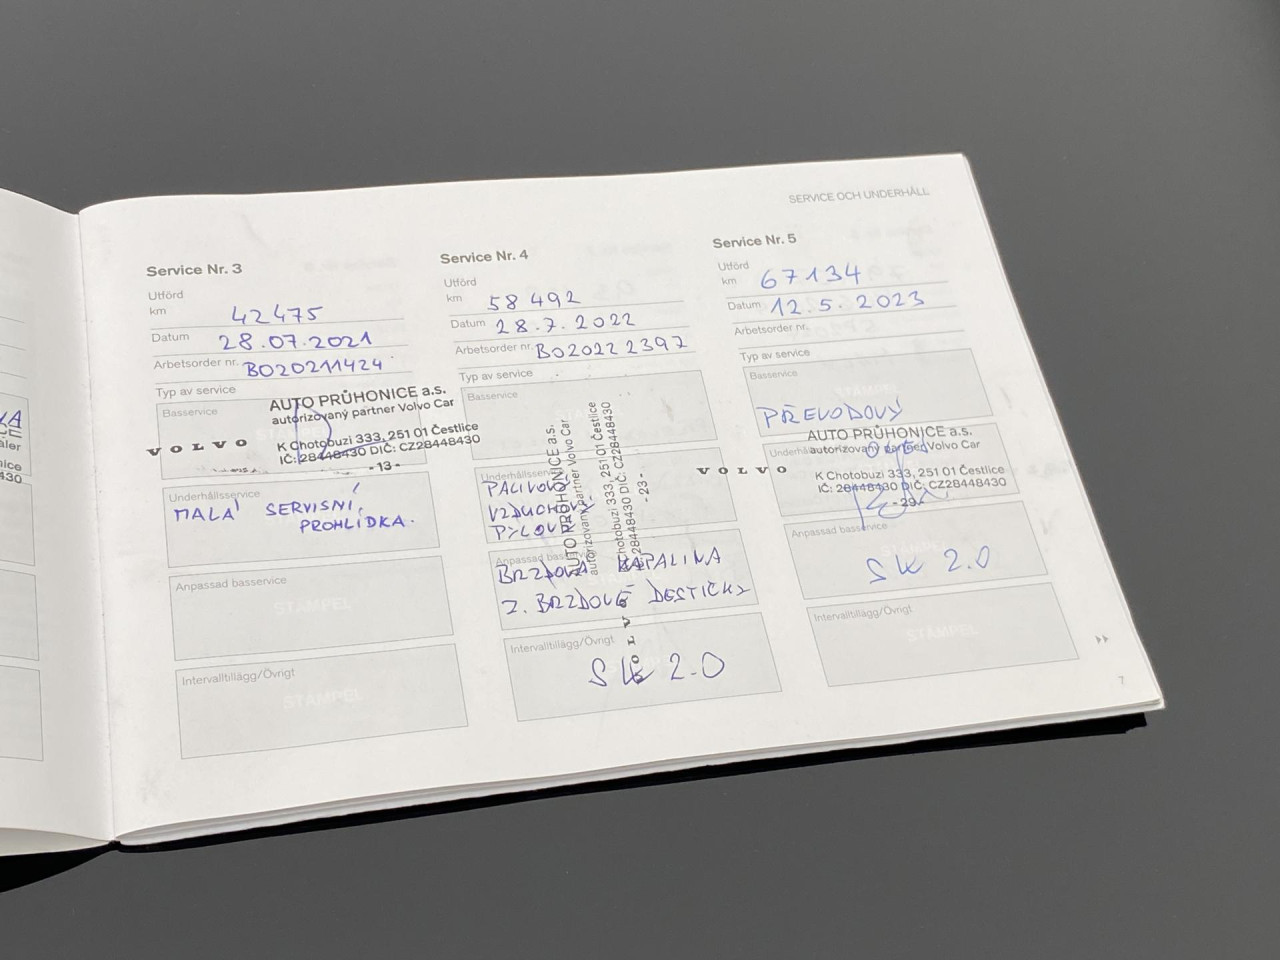 SERVICE OCH UNDERHÅLL
Service Nr. 3
Utförd
km 42475
Datum 28.07.2021
Arbetsorder nr. BO20211424
Typ av service
Basservice
AUTO PRŮHONICE a.s.
autorizovaný partner Volvo Car
VOLVO
K Chotobuzi 333, 251 01 Čestlice
IČ: 28448430 DIČ: CZ28448430
- 13 -
Underhållsservice
MALÁ SERVISNÍ
PROHLÍDKA.
Anpassad basservice
STÄMPEL
Intervalltillägg/Övrigt
STÄMPEL
Service Nr. 4
Utförd
km 58 492
Datum 28.7.2022
Arbetsorder nr. BO2022 2397
Typ av service
Basservice
AUTO PRŮHONICE a.s.
autorizovaný partner Volvo Car
K Chotobuzi 333, 251 01 Čestlice
IČ: 28448430 DIČ: CZ28448430
- 23 -
Underhållsservice
PALIVOVÝ
VZDUCHOVÝ
PYLOVÝ
Anpassad basservice
BRZDOVÁ KAPALINA
Z. BRZDOVÉ DESTIČKY
VOLVO
Intervalltillägg/Övrigt
SW 2.0
Service Nr. 5
Utförd
km 67134
Datum 12.5.2023
Arbetsorder nr.
Typ av service
Basservice
STÄMPEL
PŘEVODOVÝ
AUTO PRŮHONICE a.s.
autorizovaný partner Volvo Car
VOLVO
K Chotobuzi 333, 251 01 Čestlice
IČ: 28448430 DIČ: CZ28448430
- 29 -
Anpassad basservice
SW 2.0
Intervalltillägg/Övrigt
STÄMPEL
7